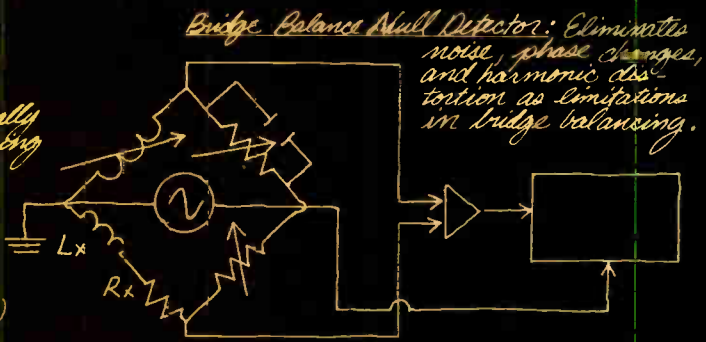 Bridge Balance Null Detector: Eliminates
noise, phase changes,
and harmonic dis-
tortion as limitations
in bridge balancing.
Lx
Rx
)